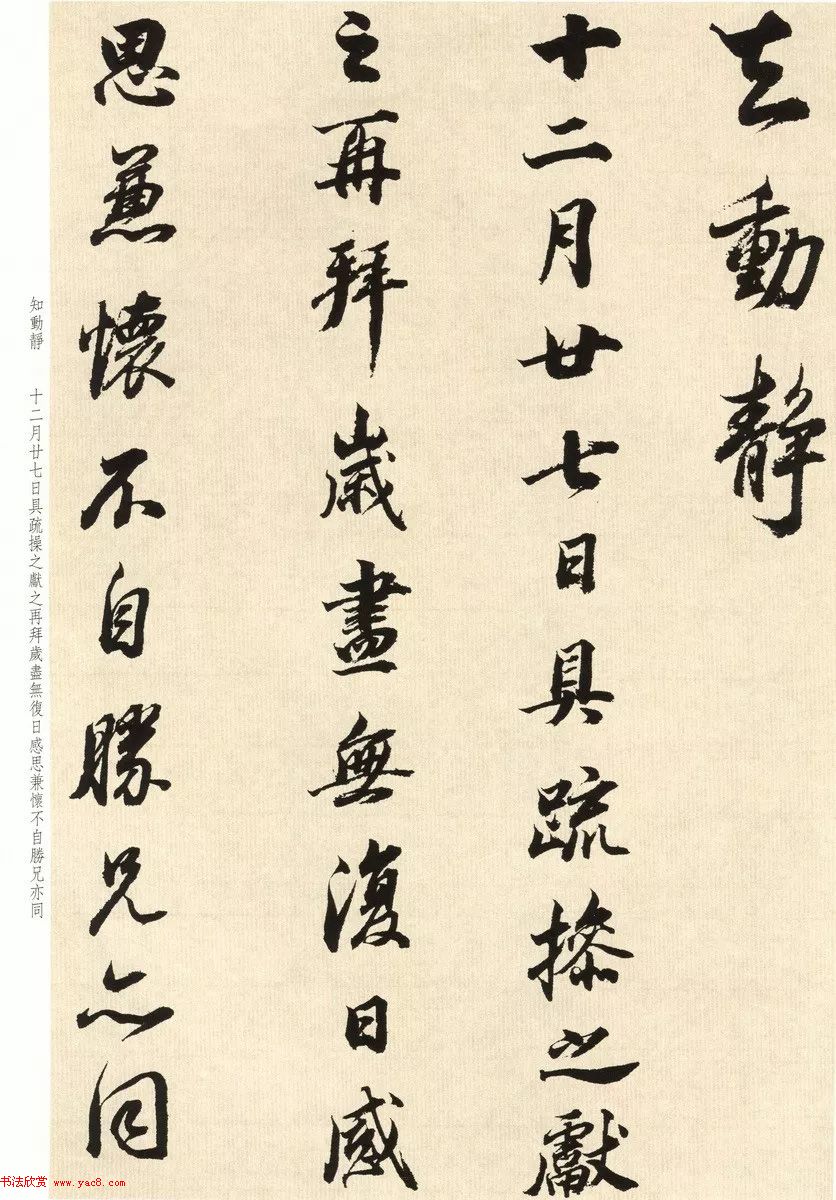 知動靜
十二月廿七日具疏操之獻
之再拜歲盡無復日感
思兼懷不自勝兄亦同
知動靜 十二月廿七日具疏操之獻之再拜歲盡無復日感思兼懷不自勝兄亦同
书法欣赏 www.yac8.com